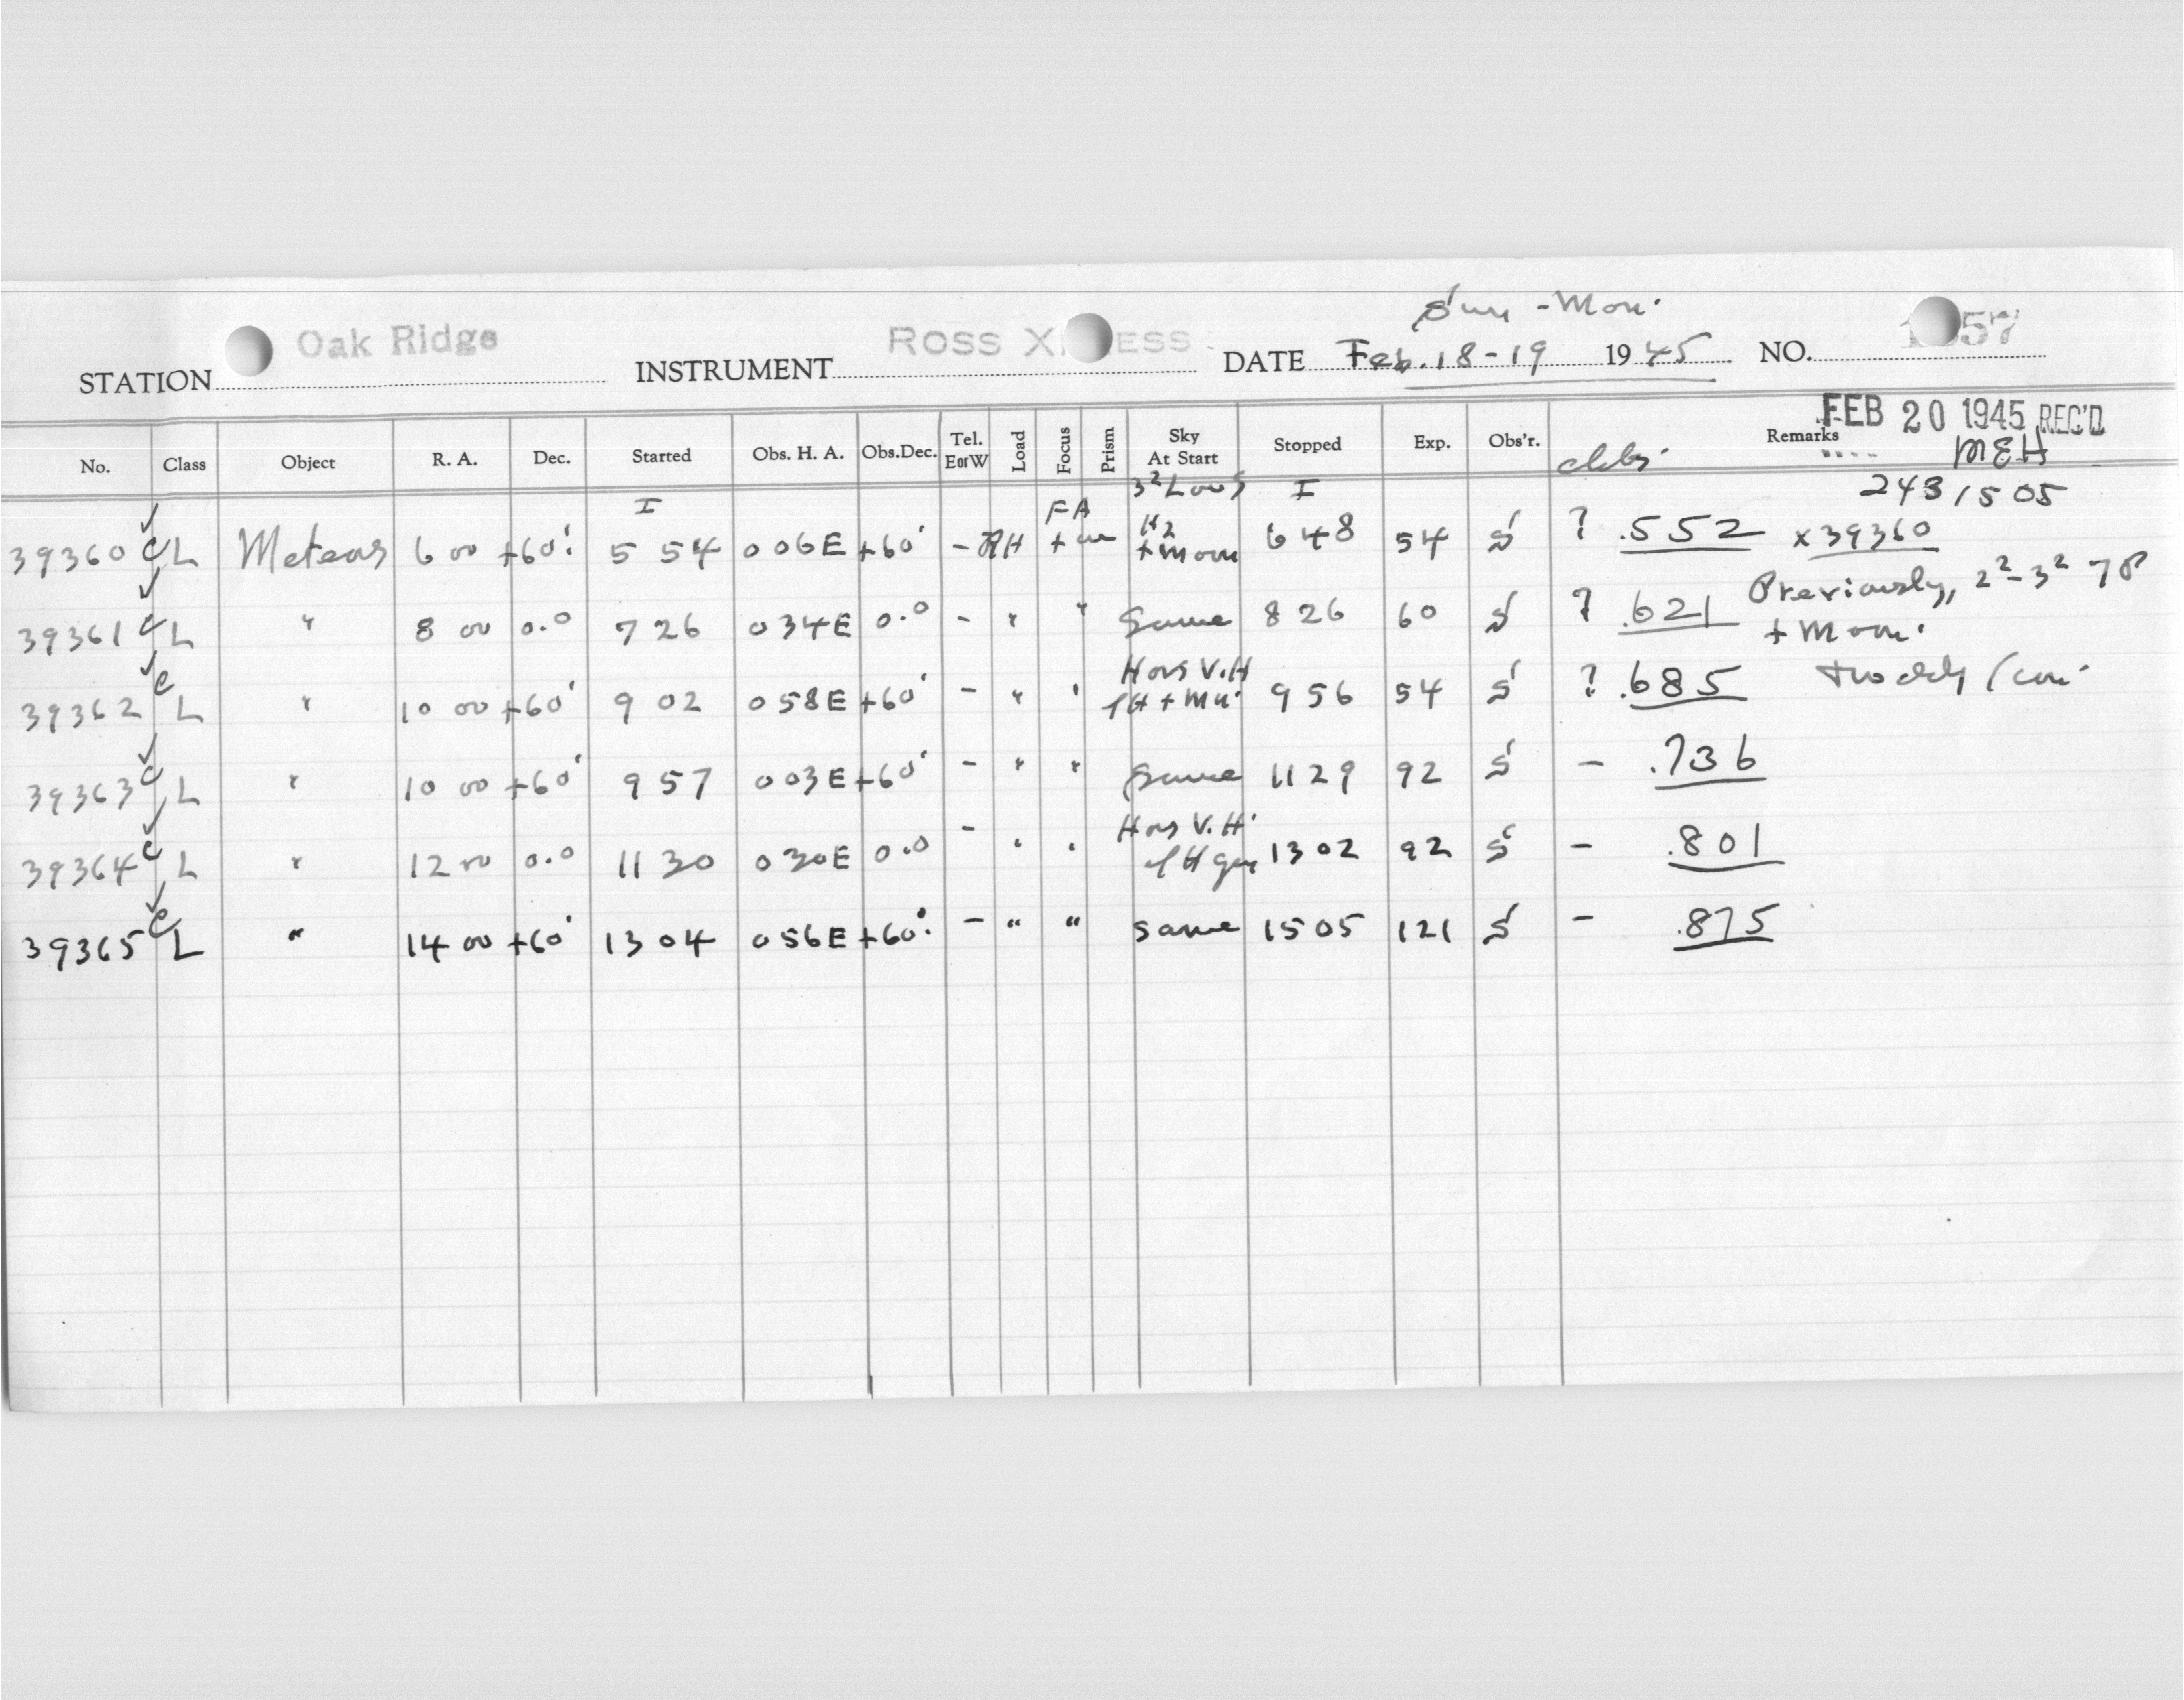 Sun - Mon.
STATION Oak Ridge INSTRUMENT ROSS X ESS DATE Feb. 18-19 1945 NO. 57
FEB 20 1945 REC'D
No. Class Object R. A. Dec. Started Obs. H. A. Obs. Dec. Tel. E or W Load Focus Prism Sky At Start Stopped Exp. Obs'r. Remarks
MEH
I FA I 2431505
39360 C L Meteors 6 00 +60° 5 54 0 06E +60° - RH + H2 + moon 6 48 54 S ? .552 x 39360
39361 C L " 8 00 0.0 7 26 0 34E 0.0 - " " Same 8 26 60 S ? .621 Previously, 2²-3² 78
+ Moon.
39362 C L " 10 00 +60° 9 02 0 58E +60° - " " 9 56 54 S ? .685
39363 C L " 10 00 +60° 9 57 0 03E +60° - " " Same 11 29 92 S - .736
39364 C L " 12 00 0.0 11 30 0 30E 0.0 - " " 13 02 92 S - .801
39365 C L " 14 00 +60° 13 04 0 56E +60° - " " Same 15 05 121 S - .875